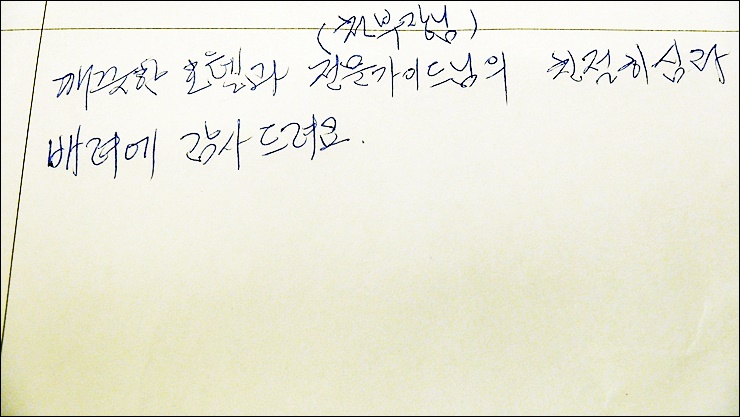 (차부장님)
깨끗한 호텔과 전문가이드님의 친절하심과
배려에 감사드려요.